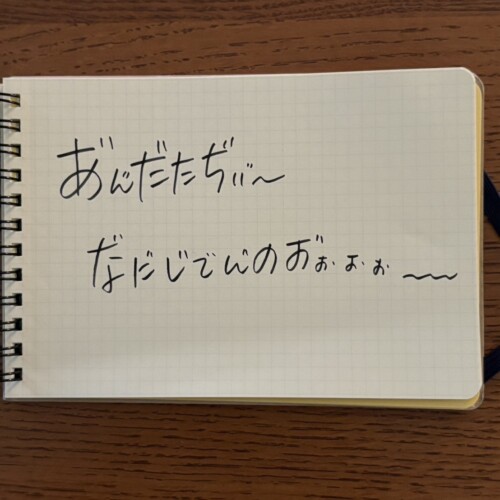 あ゙ん゙だたぢぃ゙〜
な゙にじでん゙のお゙ぉぉぉ〜〜